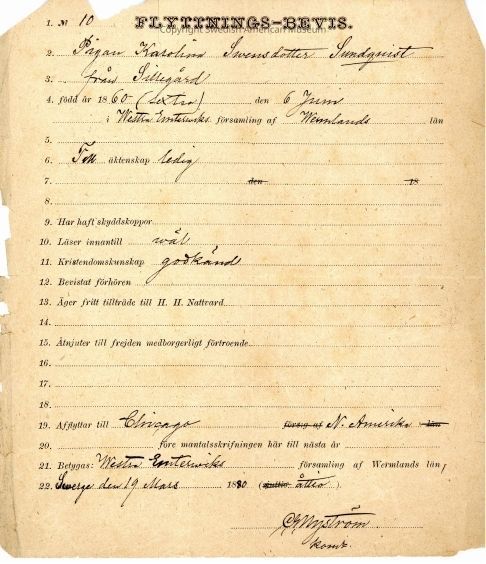 1. № 10 FLYTTNINGS-BEVIS.
Copyright Swedish American Museum
2. Pigan Karolina Svensdotter Sundqvist
3. från Sillegård
4. född år 1860 (sextio) den 6 Juni
i Westra Emterwiks församling af Wermlands län
5.
6. Till äktenskap ledig
7. den 18
8.
9. Har haft skyddskoppor
10. Läser innantill wäl
11. Kristendomskunskap godkänd
12. Bevistat förhören
13. Äger fritt tillträde till H. H. Nattvard
14.
15. Åtnjuter till frejden medborgerligt förtroende
16.
17.
18.
19. Afflyttar till Chicago försig af N. Amerika län
20. före mantalsskrifningen här till nästa år
21. Betygas: Westra Emterwiks församling af Wermlands län,
22. Sverge den 19 Mars 1880 (åttio).
Nyström
komr.